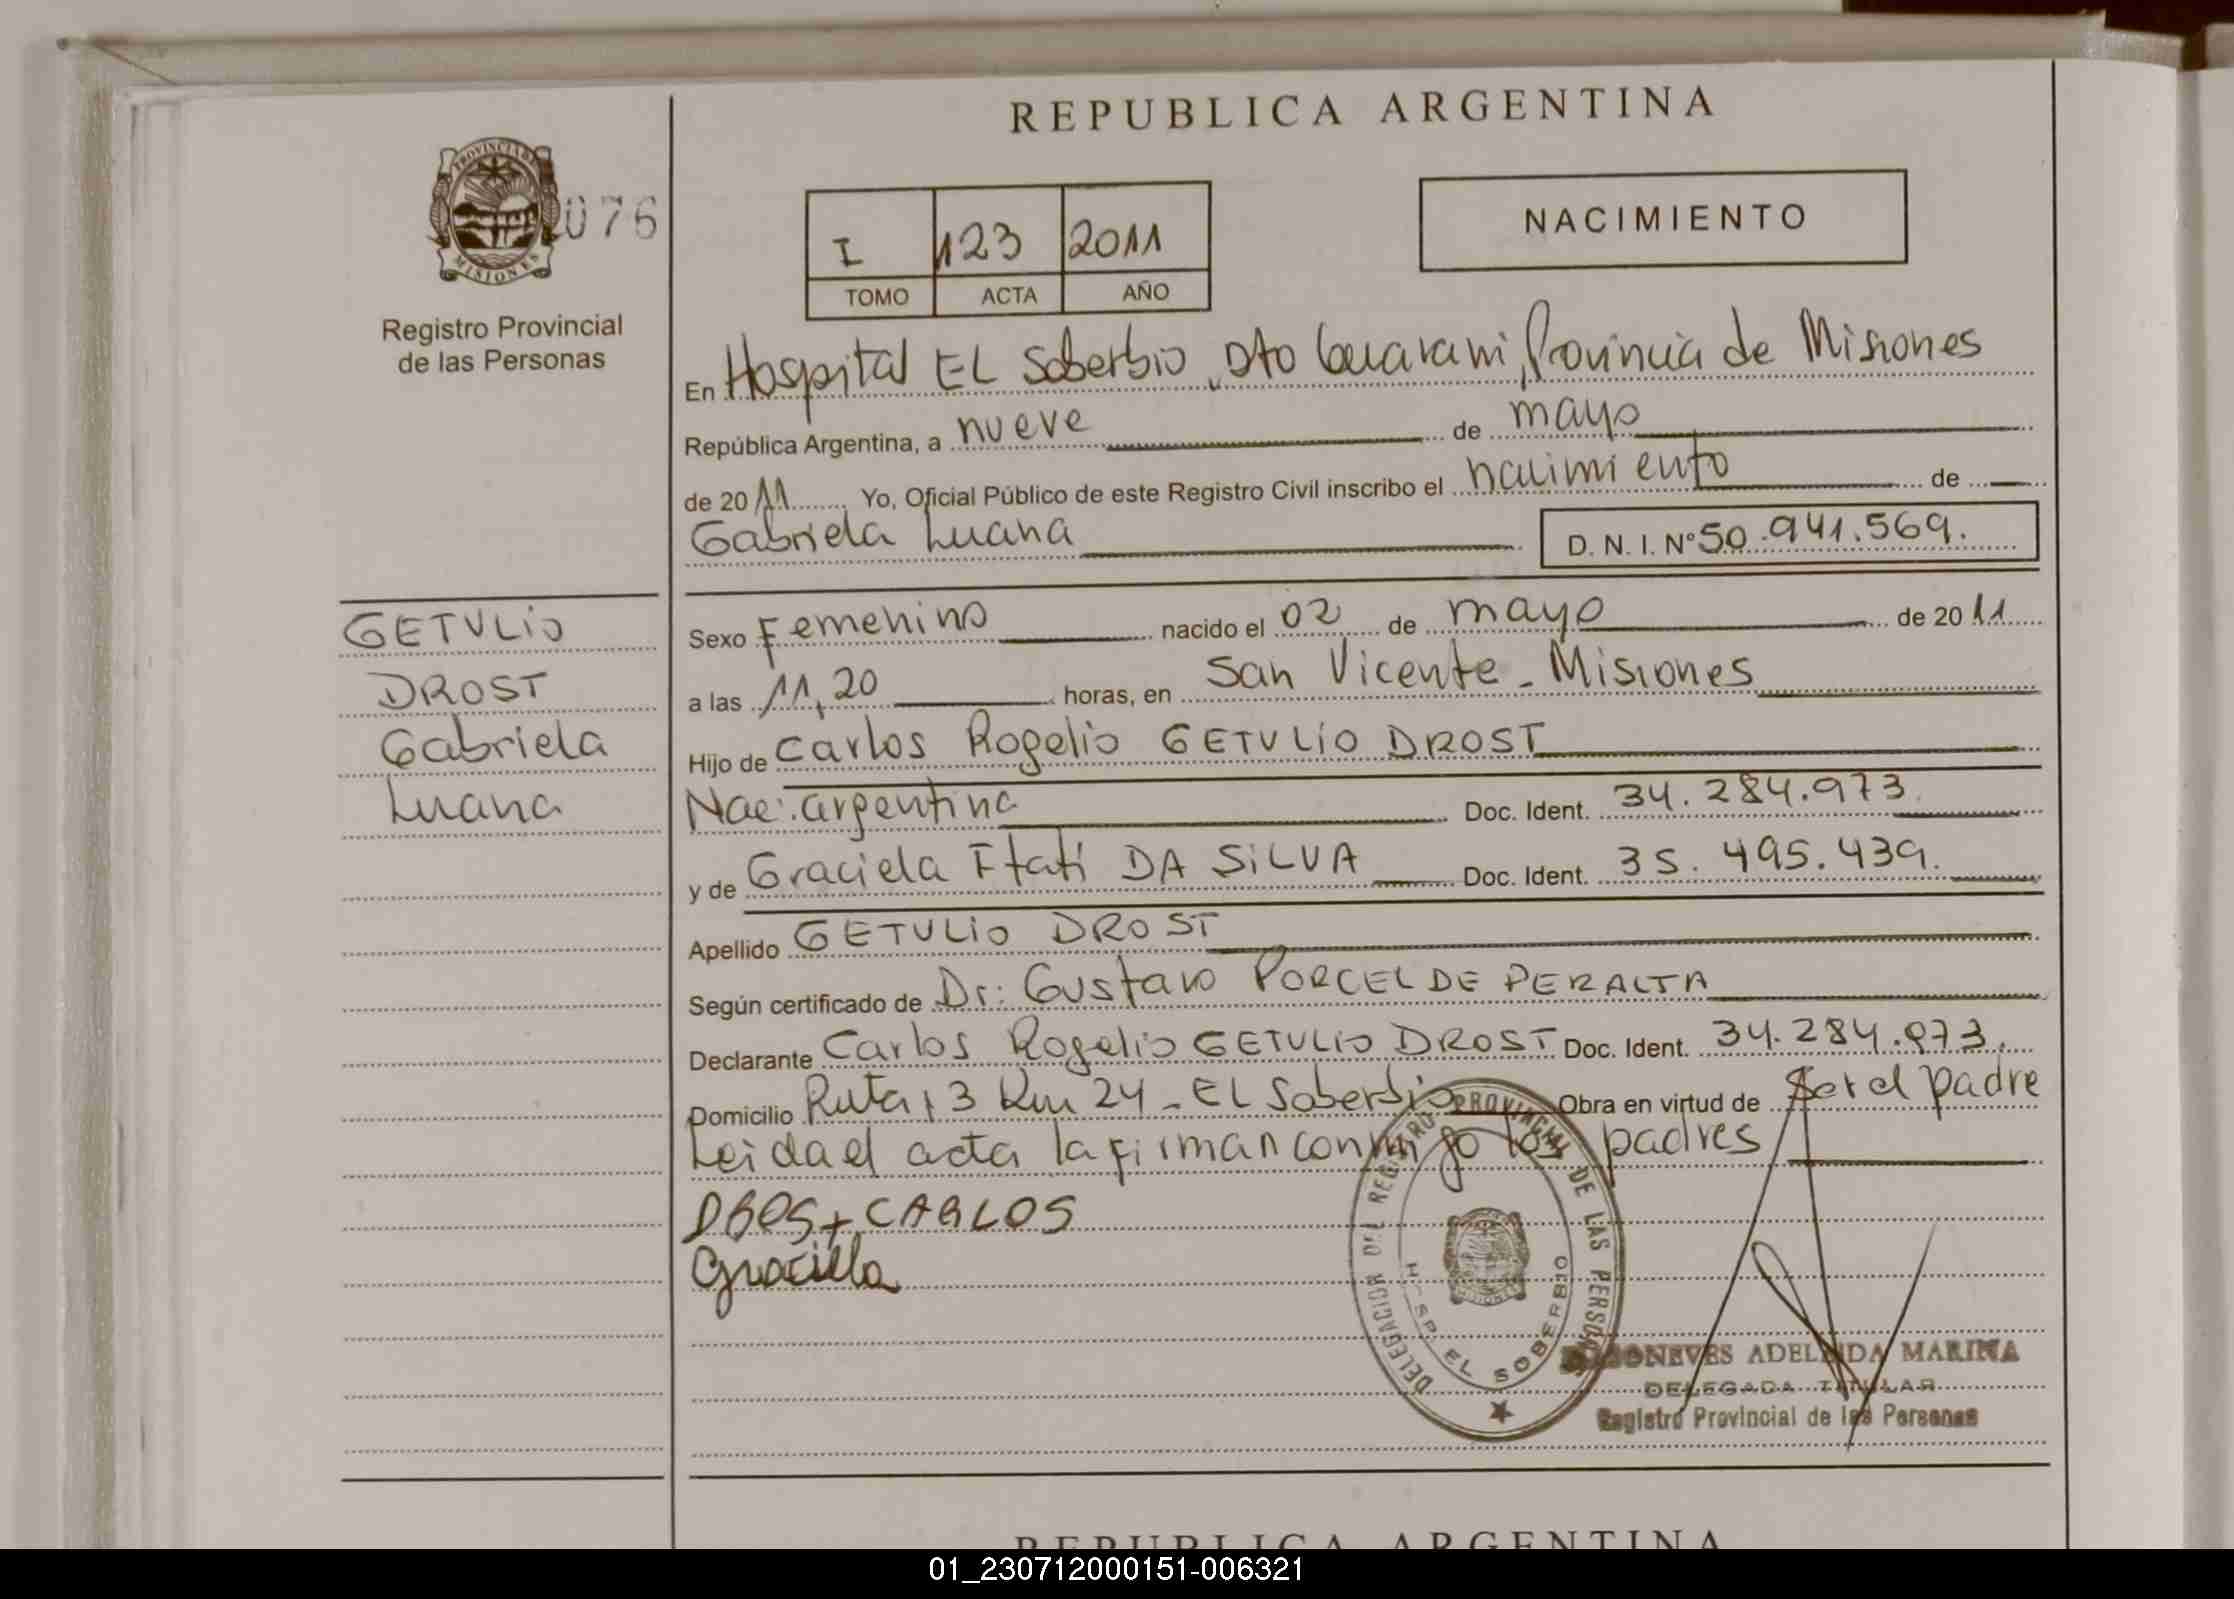 REPUBLICA ARGENTINA
PROVINCIA DE MISIONES
076
Registro Provincial
de las Personas
I 123 2011
TOMO ACTA AÑO
NACIMIENTO
En Hospital EL Soberbio, Dto Guarani, Provincia de Misiones
República Argentina, a nueve de mayo
de 2011 Yo, Oficial Público de este Registro Civil inscribo el nacimiento de
Gabriela Luana D. N. I. Nº 50.941.569.
GETULIO
DROST
Gabriela
Luana
Sexo Femenino nacido el 02 de mayo de 2011
a las 11,20 horas, en San Vicente - Misiones
Hijo de Carlos Rogelio GETULIO DROST
Nac: argentina Doc. Ident. 34.284.973
y de Graciela Itatí DA SILVA Doc. Ident. 35.495.439.
Apellido GETULIO DROST
Según certificado de Dr. Gustavo PORCEL DE PERALTA
Declarante Carlos Rogelio GETULIO DROST Doc. Ident. 34.284.973.
Domicilio Ruta 13 Km 24 - EL Soberbio Obra en virtud de Ser el padre
Leida el acta la firman conmigo los padres
DROST CARLOS
DELEGACION DEL REGISTRO PROVINCIAL DE LAS PERSONAS
HOSP. EL SOBERBIO
ADELAIDA MARINA
DELEGADA TITULAR
Registro Provincial de las Personas
REPUBLICA ARGENTINA
01_230712000151-006321